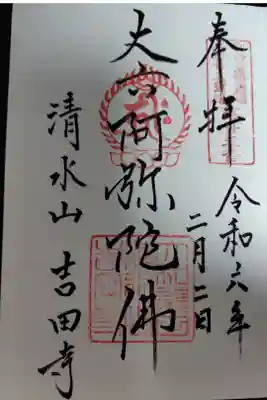 奉拝
令和六年
二月二日
大方阿弥陀佛
清水山 吉田寺